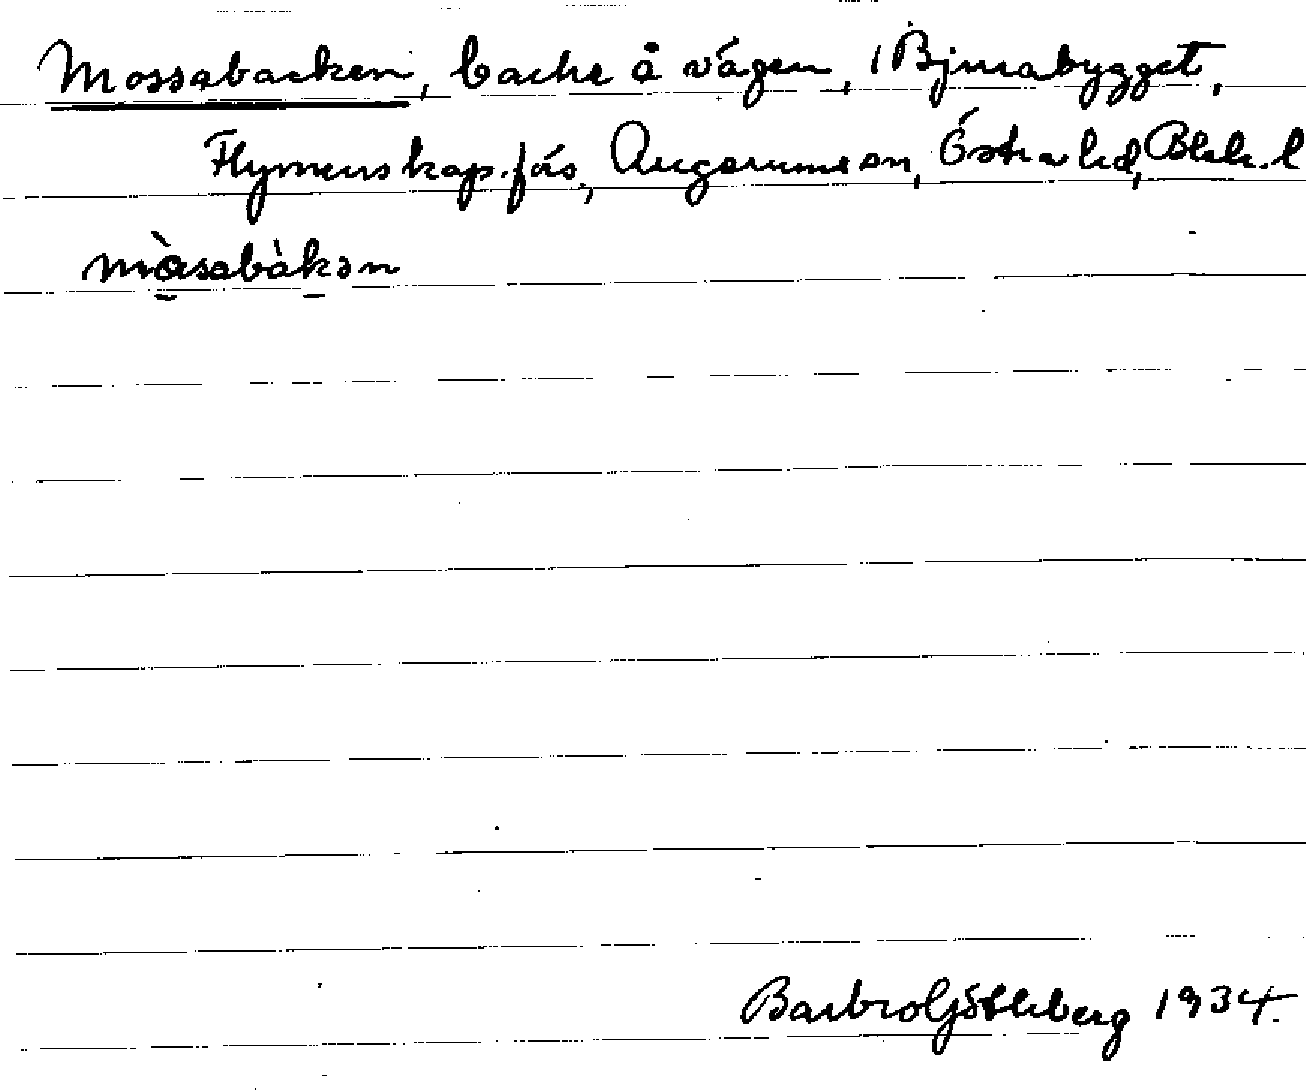 Mossabacken, backe å vägen, i Bjurabygget,
Flymenskap.fås., Augerums sn, Östra hd, Blek. l
mòsabàkən
Barbro Götheberg 1934.